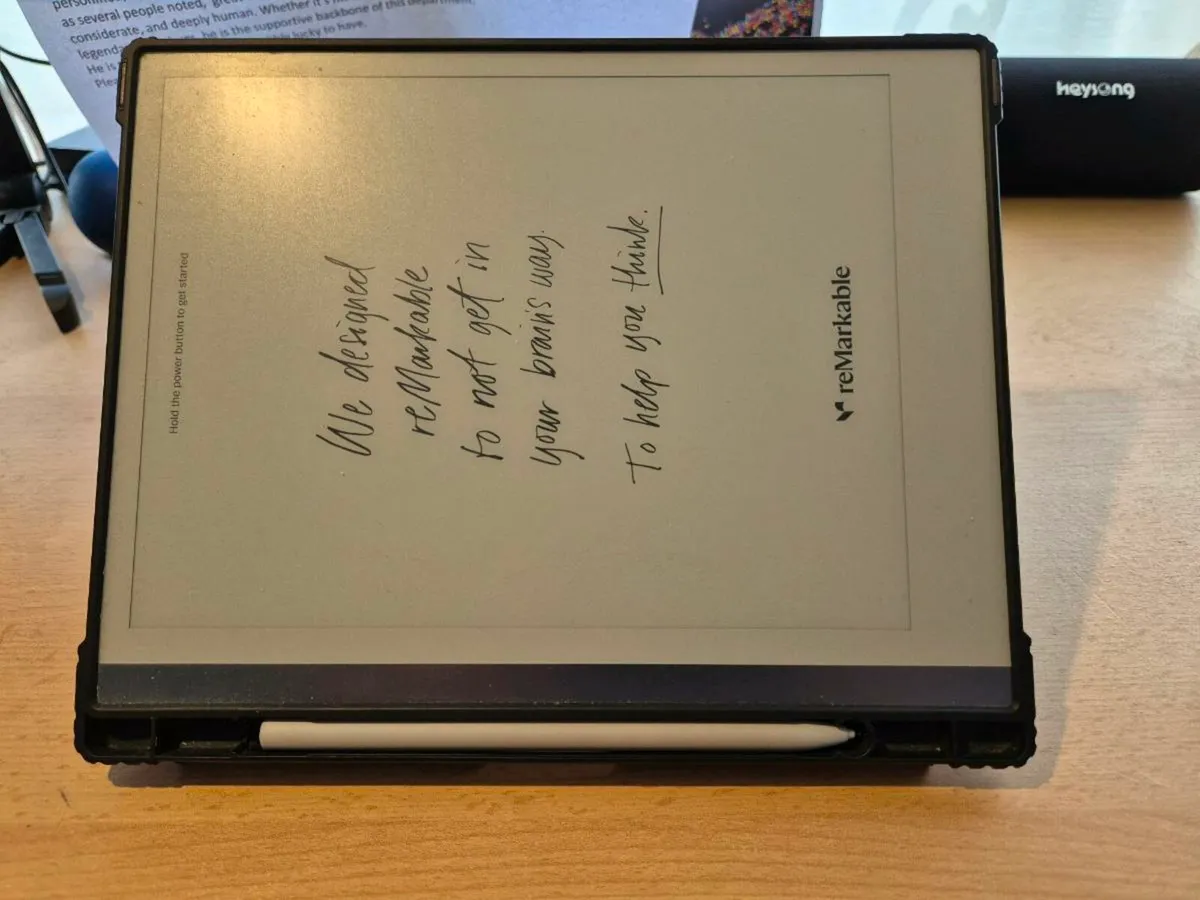 as several people noted, great
considerate, and deeply human. Whether it's
he is the supportive backbone of this department.
lucky to have.
He is
heysong
Hold the power button to get started
We designed
reMarkable
to not get in
your brain's way.
To help you think.
reMarkable